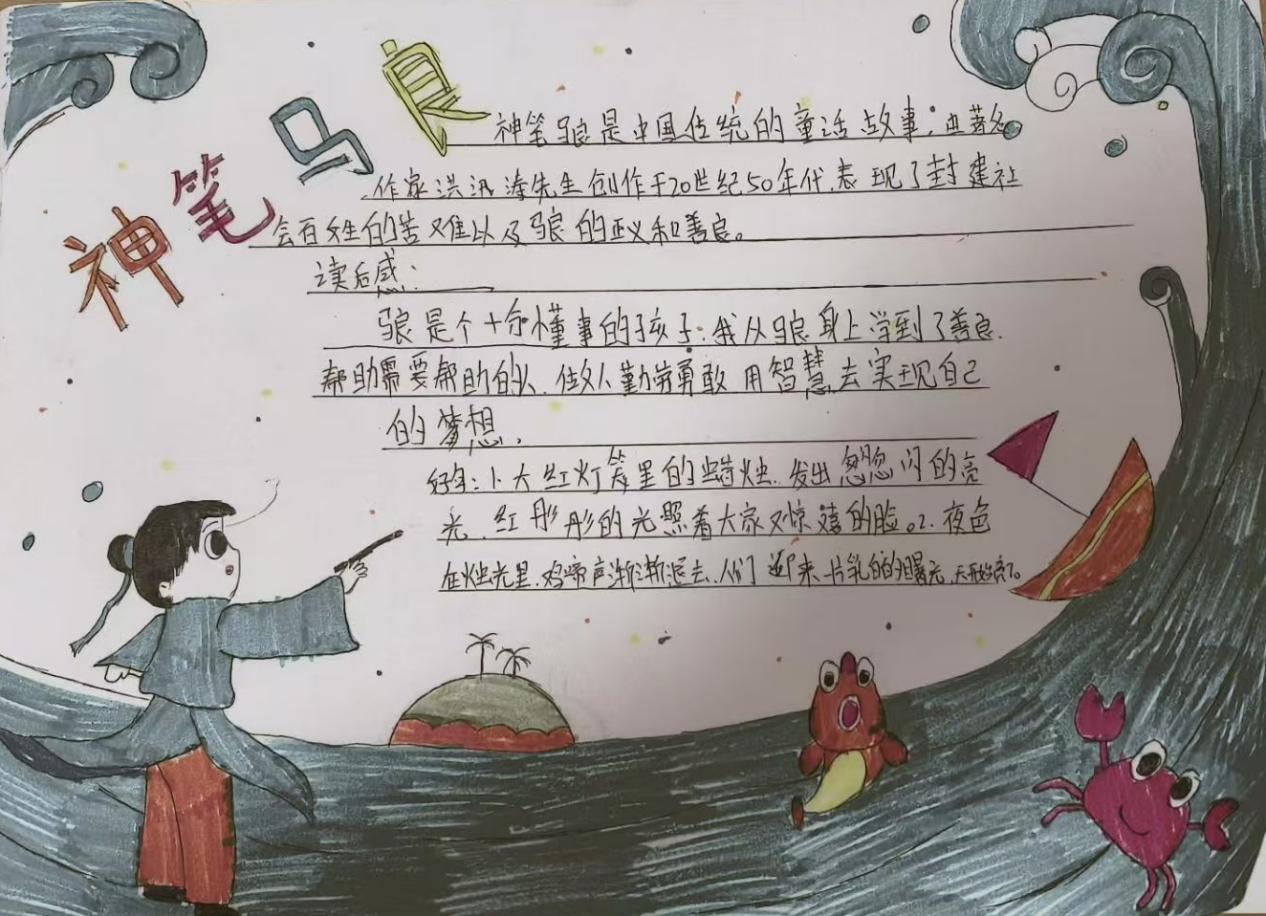 神笔马良
神笔马良是中国传统的童话故事,由著名
作家洪汛涛先生创作于20世纪50年代,表现了封建社
会百姓的苦难以及马良的正义和善良。
读后感:
马良是个十分懂事的孩子.我从马良身上学到了善良.
帮助需要帮助的人.做人勤劳勇敢用智慧去实现自己
的梦想.
好句:1.大红灯笼里的蜡烛.发出忽忽闪的亮
光.红彤彤的光照着大家又惊嘻的脸。2.夜色
在烛光里.鸡啼声渐渐退去.人们迎来一片乳白的曙光,天开始亮了。